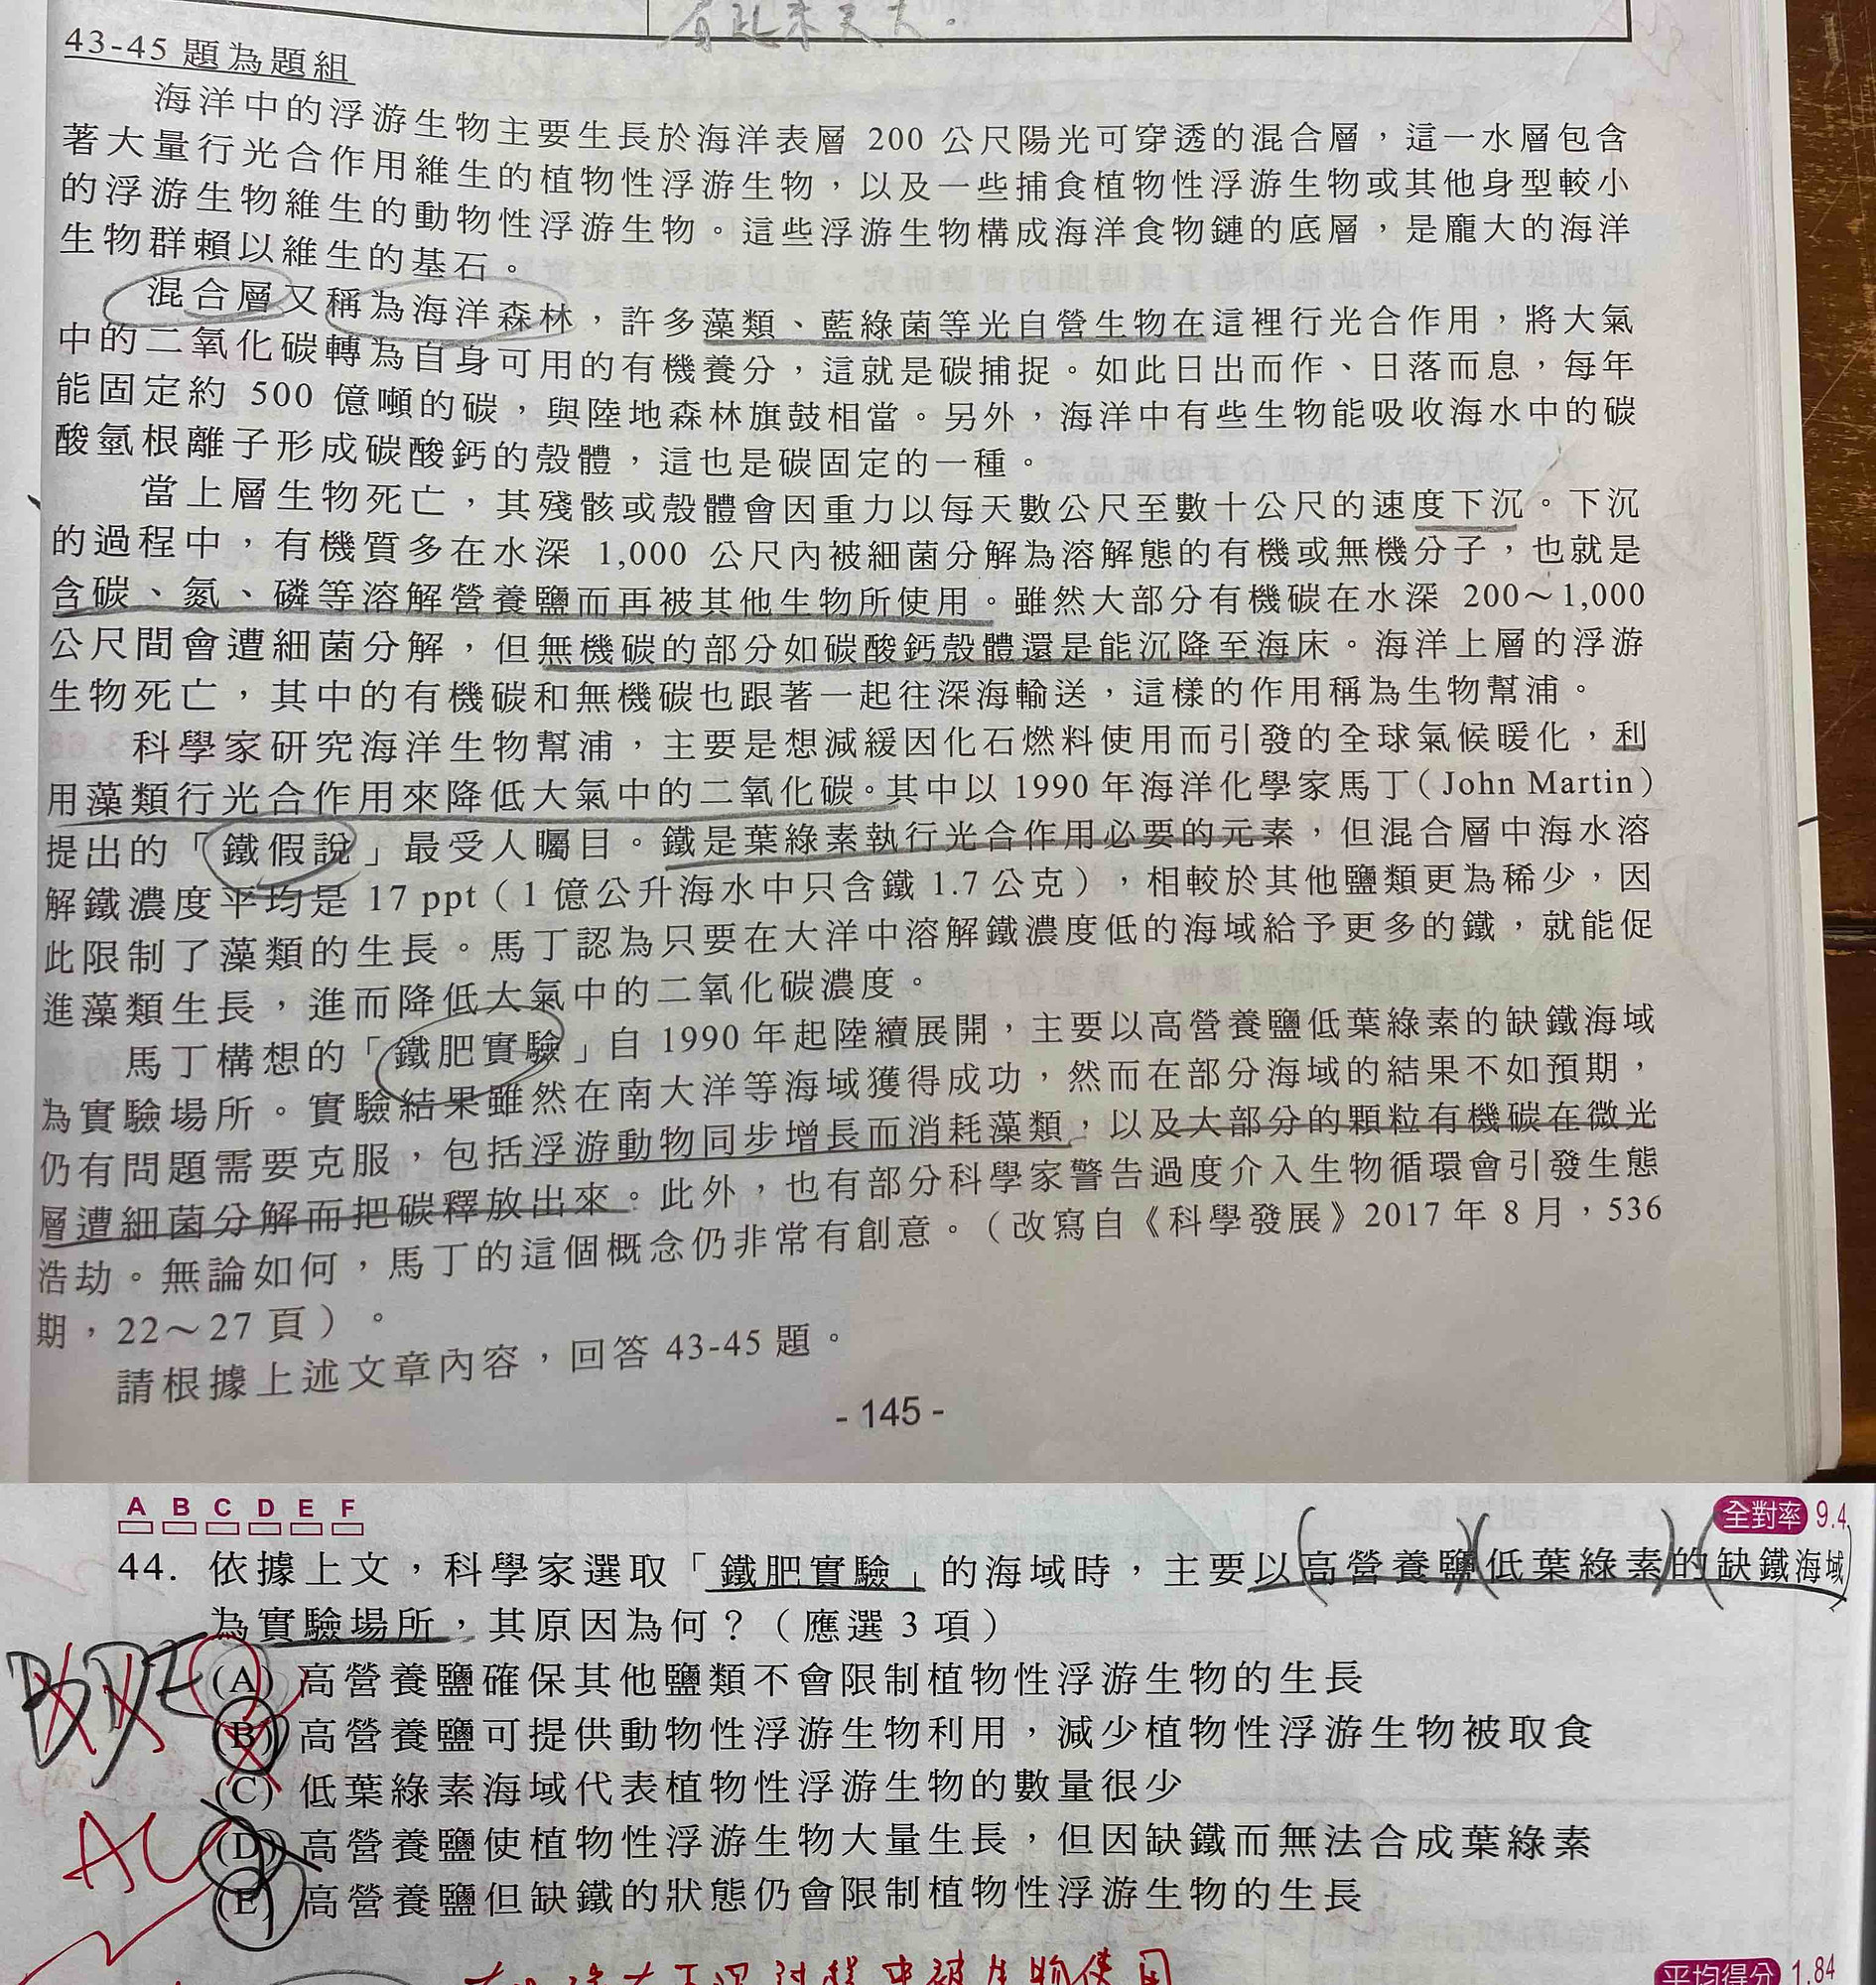 有此未又大。
43-45 題為題組
海洋中的浮游生物主要生長於海洋表層 200 公尺陽光可穿透的混合層，這一水層包含
著大量行光合作用維生的植物性浮游生物，以及一些捕食植物性浮游生物或其他身型較小
的浮游生物維生的動物性浮游生物。這些浮游生物構成海洋食物鏈的底層，是龐大的海洋
生物群賴以維生的基石。
混合層又稱為海洋森林，許多藻類、藍綠菌等光自營生物在這裡行光合作用，將大氣
中的二氧化碳轉為自身可用的有機養分，這就是碳捕捉。如此日出而作、日落而息，每年
能固定約 500 億噸的碳，與陸地森林旗鼓相當。另外，海洋中有些生物能吸收海水中的碳
酸氫根離子形成碳酸鈣的殼體，這也是碳固定的一種。
當上層生物死亡，其殘骸或殼體會因重力以每天數公尺至數十公尺的速度下沉。下沉
的過程中，有機質多在水深 1,000 公尺內被細菌分解為溶解態的有機或無機分子，也就是
含碳、氮、磷等溶解營養鹽而再被其他生物所使用。雖然大部分有機碳在水深 200～1,000
公尺間會遭細菌分解，但無機碳的部分如碳酸鈣殼體還是能沉降至海床。海洋上層的浮游
生物死亡，其中的有機碳和無機碳也跟著一起往深海輸送，這樣的作用稱為生物幫浦。
科學家研究海洋生物幫浦，主要是想減緩因化石燃料使用而引發的全球氣候暖化，利
用藻類行光合作用來降低大氣中的二氧化碳。其中以 1990 年海洋化學家馬丁（John Martin）
提出的「鐵假說」最受人矚目。鐵是葉綠素執行光合作用必要的元素，但混合層中海水溶
解鐵濃度平均是 17 ppt（1 億公升海水中只含鐵 1.7 公克），相較於其他鹽類更為稀少，因
此限制了藻類的生長。馬丁認為只要在大洋中溶解鐵濃度低的海域給予更多的鐵，就能促
進藻類生長，進而降低大氣中的二氧化碳濃度。
馬丁構想的「鐵肥實驗」自 1990 年起陸續展開，主要以高營養鹽低葉綠素的缺鐵海域
為實驗場所。實驗結果雖然在南大洋等海域獲得成功，然而在部分海域的結果不如預期，
仍有問題需要克服，包括浮游動物同步增長而消耗藻類，以及大部分的顆粒有機碳在微光
層遭細菌分解而把碳釋放出來。此外，也有部分科學家警告過度介入生物循環會引發生態
浩劫。無論如何，馬丁的這個概念仍非常有創意。（改寫自《科學發展》2017 年 8 月，536
期，22～27 頁）。
請根據上述文章內容，回答 43-45 題。
- 145 -
A B C D E F
全對率 9.4
44. 依據上文，科學家選取「鐵肥實驗」的海域時，主要以高營養鹽低葉綠素的缺鐵海域
為實驗場所，其原因為何？（應選 3 項）
BDE
(A) 高營養鹽確保其他鹽類不會限制植物性浮游生物的生長
(B) 高營養鹽可提供動物性浮游生物利用，減少植物性浮游生物被取食
(C) 低葉綠素海域代表植物性浮游生物的數量很少
AC
(D) 高營養鹽使植物性浮游生物大量生長，但因缺鐵而無法合成葉綠素
(E) 高營養鹽但缺鐵的狀態仍會限制植物性浮游生物的生長
平均得分 1.84